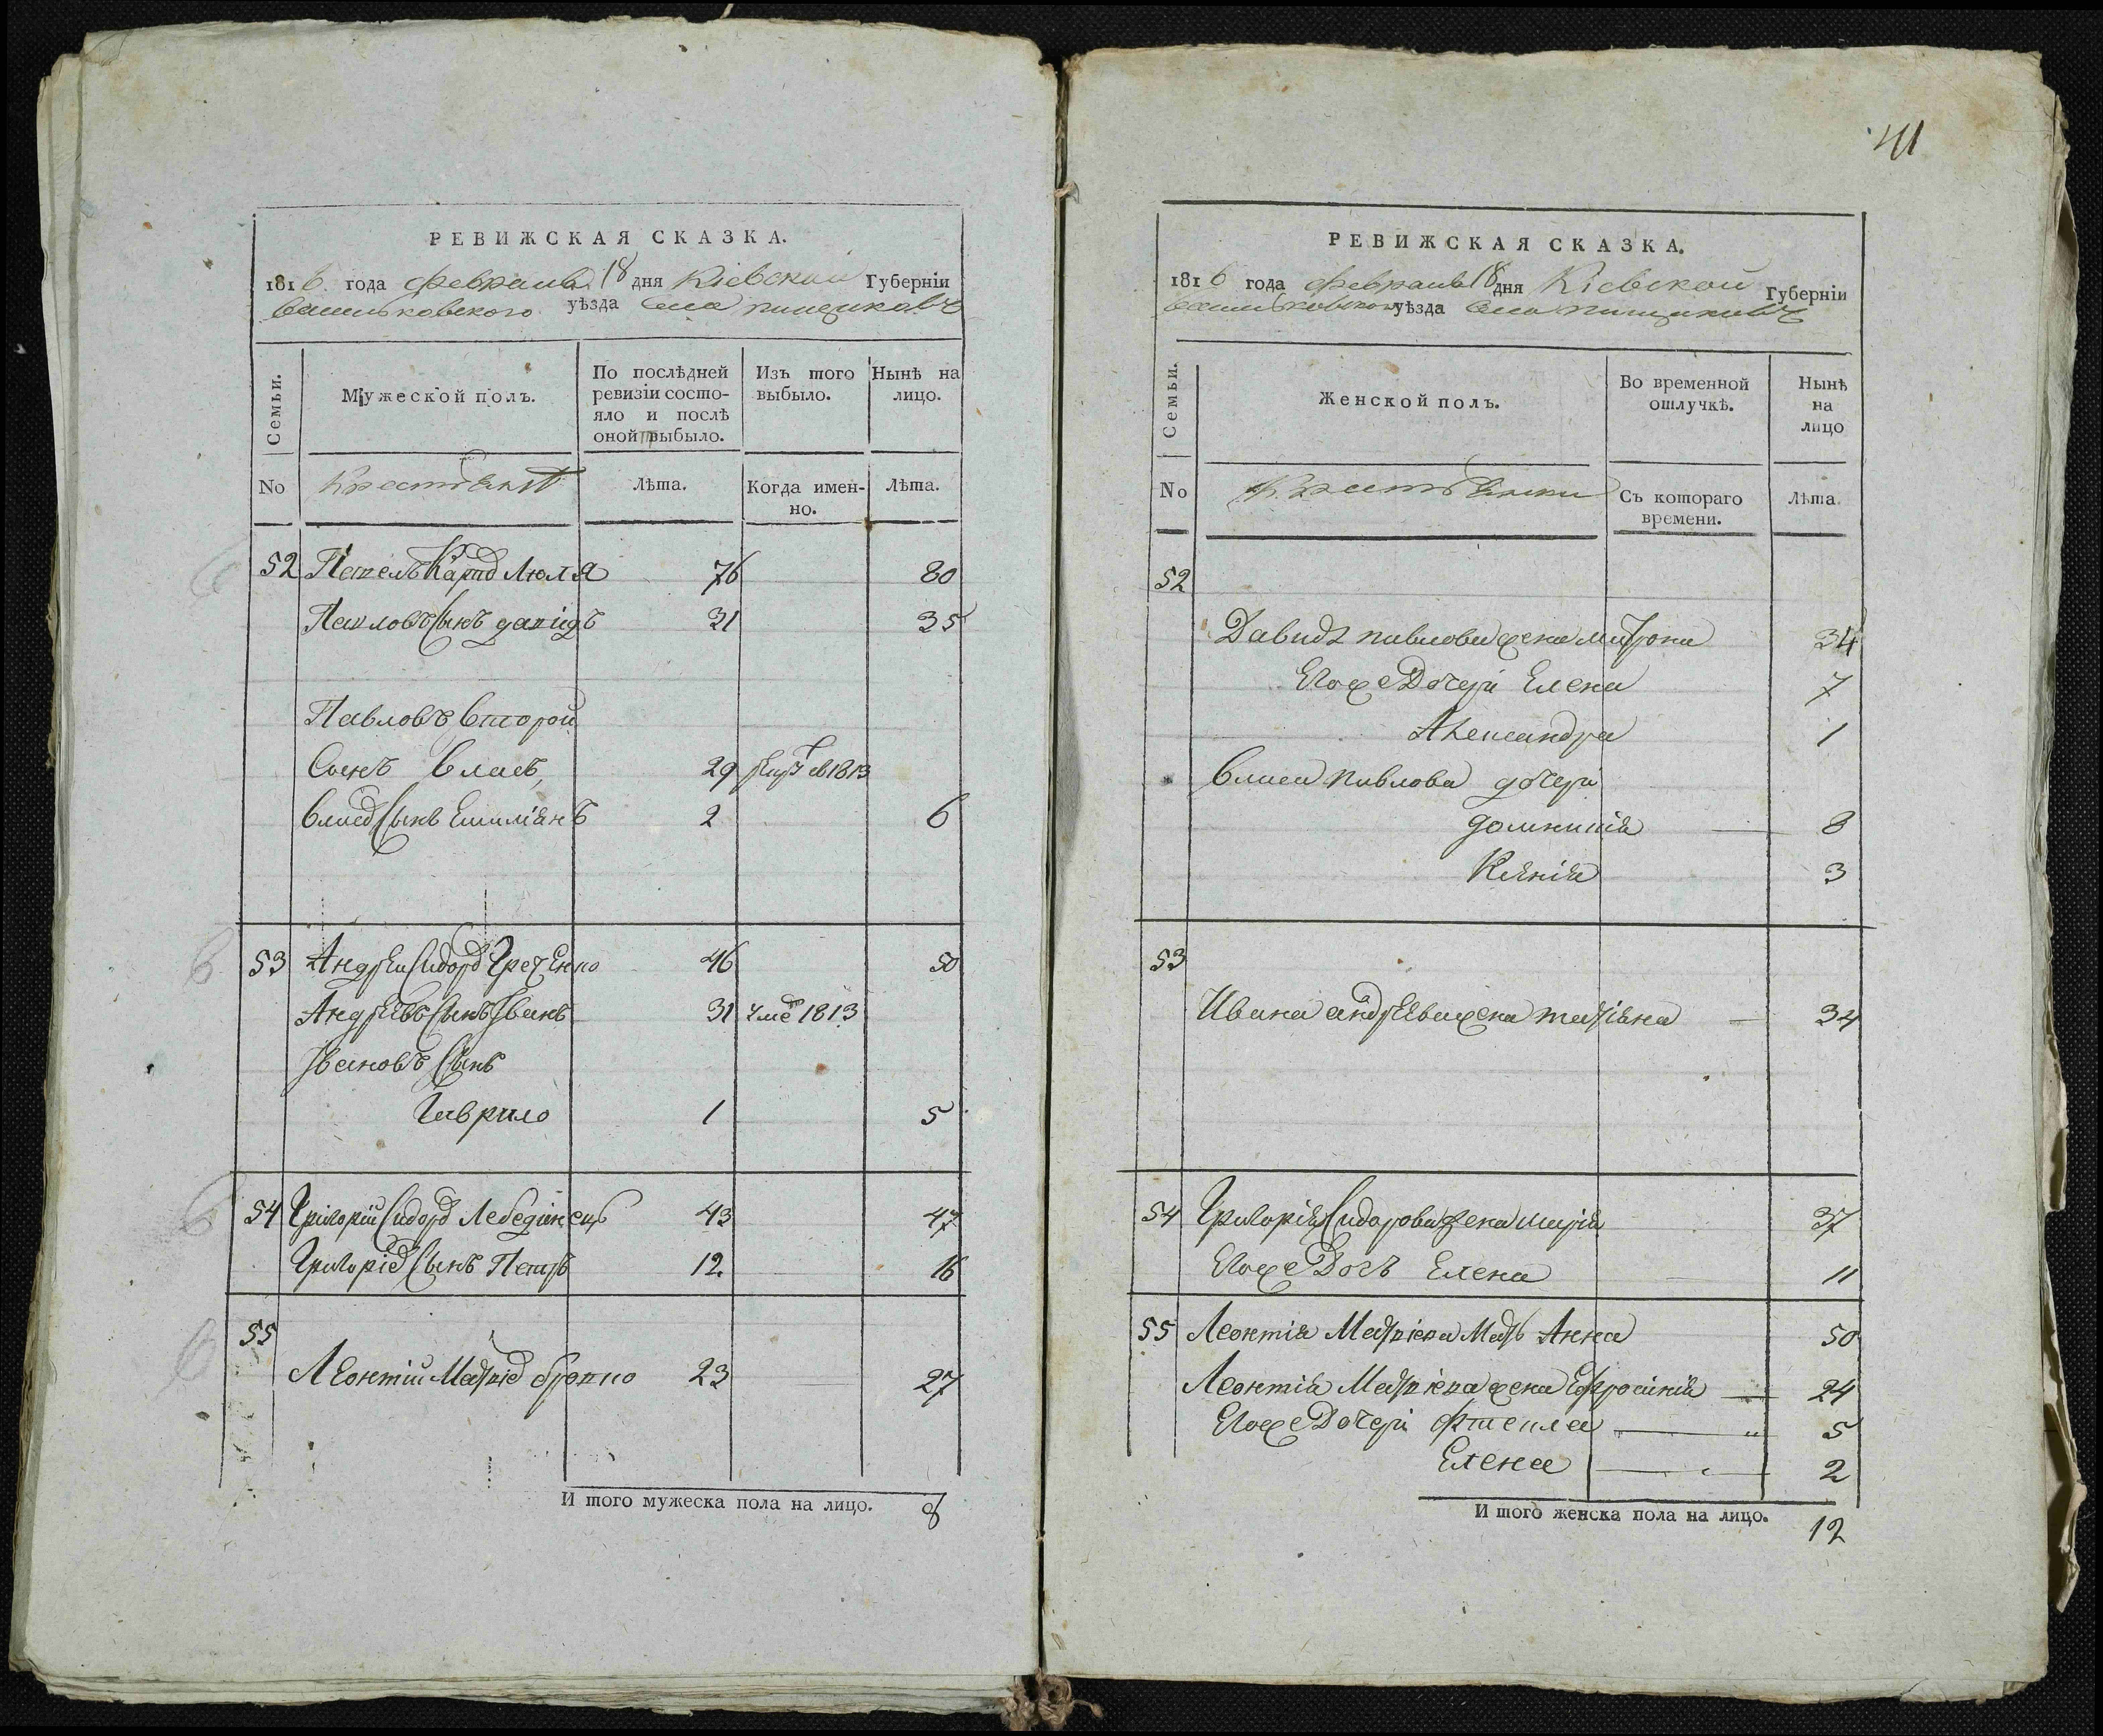 РЕВИЖСКАЯ СКАЗКА.
1816. года февраля 18 дня Кіевской Губерніи
Васильковского уѣзда Села пищиковъ
Семьи.
Мужеской полъ.
По послѣдней ревизіи состояло и послѣ оной прибыло.
Изъ того выбыло.
Нынѣ на лицо.
No
Лѣта.
Когда именно.
Лѣта.
52 Павелъ Люля 76 80
Павловъ Сынъ давидъ 31 35
Павловъ второй
Сынъ власъ 29 1813
Сынъ Емиліянъ 2 6
53 Андрей Сидоро Греченко 46 50
Андреевъ Сынъ Іванъ 31 Умре 1813
Івановъ Сынъ
Гаврило 1 5
54 Григорій Сидоро Лебединецъ 43 47
Сынъ Петръ 12. 16
55
Леонтий 23 27
И того мужеска пола на лицо. 8
41
РЕВИЖСКАЯ СКАЗКА.
1816 года февраля 18 дня Кіевской Губерніи
Васильковского уѣзда Села пищиковъ
Семьи.
Женской полъ.
Во временной отлучкѣ.
Нынѣ на лицо
No
Съ котораго времени.
Лѣта.
52
Давида павлова жена матрона 34
Егоже Дочери Елена 7
Александра 1
власа павлова дочери
домникія 8
Ксенія 3
53
Ивана андреева жена татіяна 34
54 Григорія Сидорова жена марія 37
Егоже Дочь Елена 11
55 Леонтія Матвіева Мать Анна 50
Леонтія Матвіева жена Ефросинія 24
Егоже Дочери фтекла 5
Елена 2
И того женска пола на лицо. 12